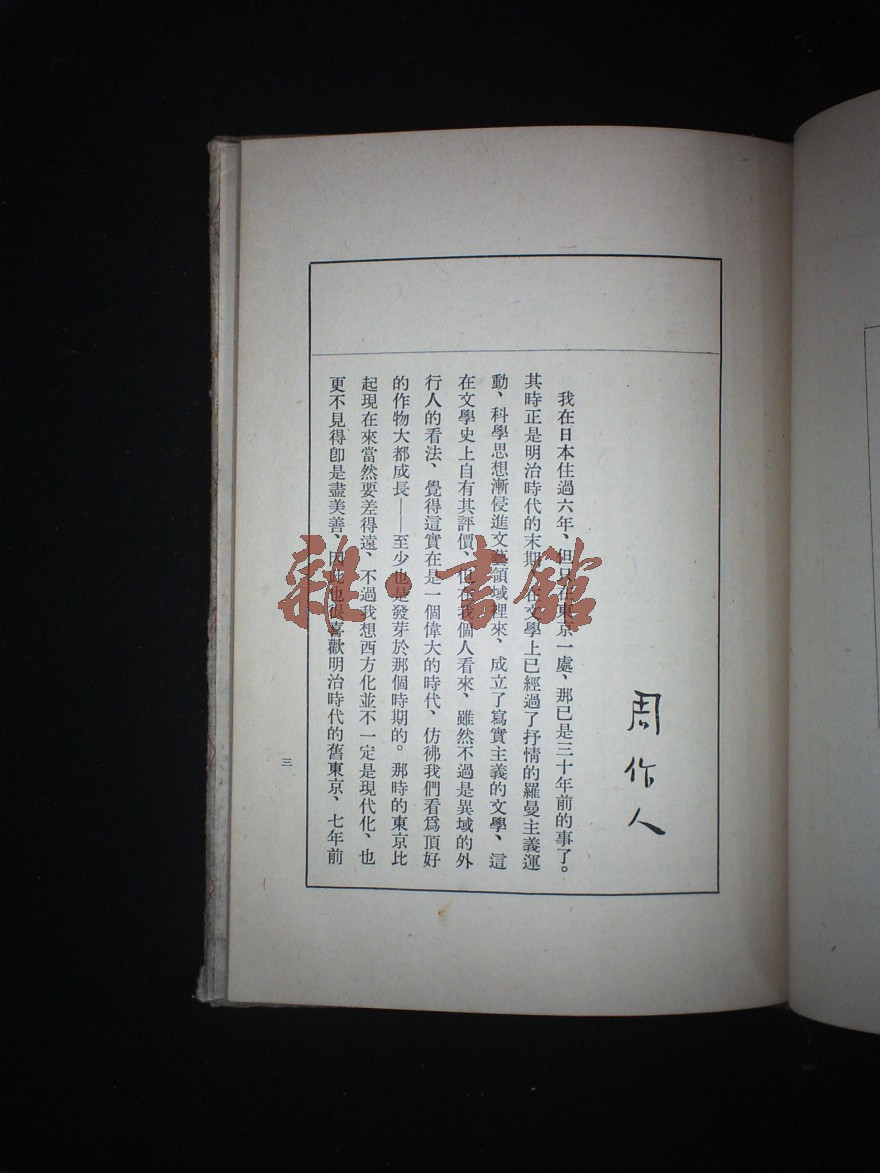 周作人
我在日本住過六年、但只在東京一處、那已是三十年前的事了。
其時正是明治時代的末期、在文學上已經過了抒情的羅曼主義運
動、科學思想漸侵進文藝領域裡來、成立了寫實主義的文學、這
在文學史上自有其評價、但在我個人看來、雖然不過是異域的外
行人的看法、覺得這實在是一個偉大的時代、仿彿我們看爲頂好
的作物大都成長——至少也是發芽於那個時期的。那時的東京比
起現在來當然要差得遠、不過我想西方化並不一定是現代化、也
更不見得卽是盡美善、因此也很喜歡明治時代的舊東京、七年前
三
雜·書館